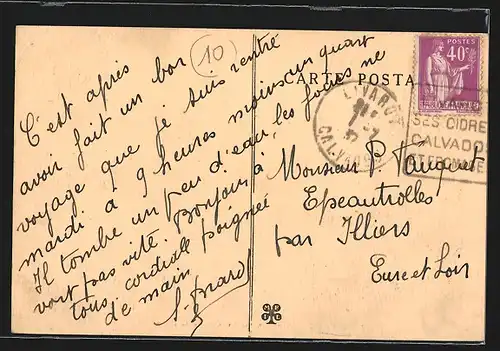 10
C'est après
avoir fait un bon
voyage que je suis rentré
mardi à 9 heures moins un quart
Il tombe un peu d'eau, les foires ne
vont pas vite. Bonjour à
tous, cordiale poignée
de main
CARTE POSTA
POSTES
40c
LIVAROT
CALVADOS
SES CIDRE
CALVADOS
ET FROMAGE
Monsieur P.
Epeautrolles
par Illiers
Eure et Loir